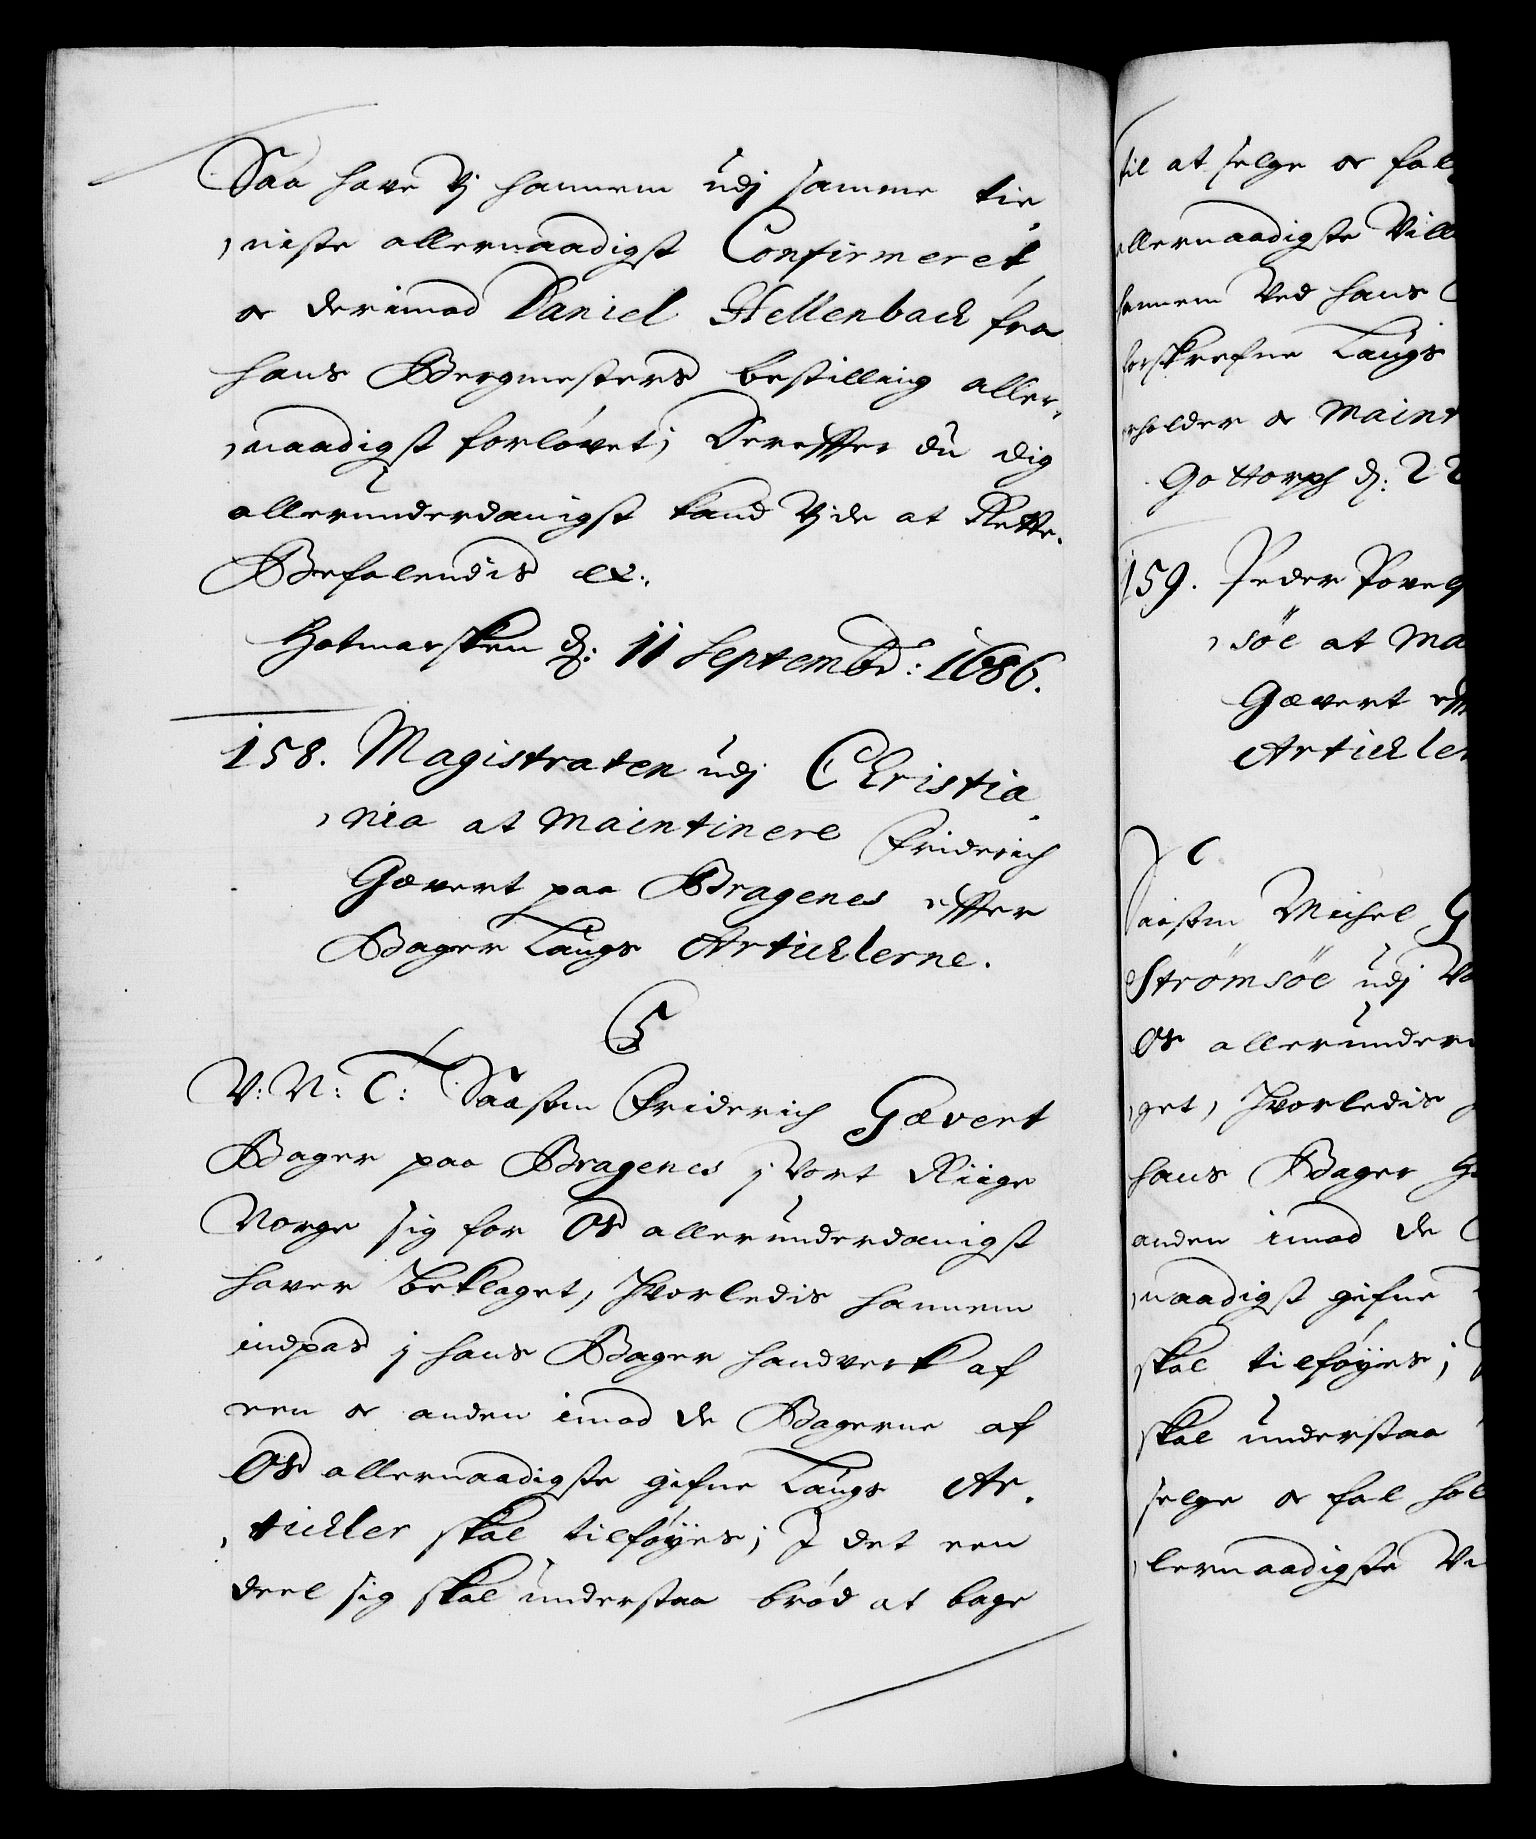 Saa have Vj hannem udj samme tie¸
¸niste allernaadigst Confirmeret,
oc derimod Daniel Hellenbach fra
hans Bergmesters bestilling aller¸
¸naadigst forløvet; Dereffter du dig
allerunderdanigst kand Vjde at Rette.
Befalendis etc:
Hatmarsken d: 11 Septembd: 1686.
158. Magistraten udj Christia
¸nia at maintinere Friderich
Gævert paa Bragenes effter
Bager Laugs Articklerne.
C5
V: N: T: Saasom Friderich Gævert
Bager paa Bragenes j Vort Riige
Norge sig for Os allerunderdanigst
haver beklaget, hvorledis hannem
indpas j hans Bager handverk af
een oc anden imod de Bagerne af
Os allernaadigste gifne Laugs Ar.
¸tickler skal tilføyes; J det een
deel sig skal understaa brød at bage
til at selge oc fal
allernaadigste Vill
hannem Ved hans
forskrefne Laugs
erholder oc maint
Gottorph d: 22
159. Peder Povels
¸søe at Ma
Gævert eff
Artickler
C
Saasom Michel G
Strømsøe udj Vo
Os allerunder
¸get, hvorledis
hans Bager Ha
anden imod de
¸naadigst gifne
skal tilføyes;
skal understaa
selge oc fal hol
¸lernaadigste Vi